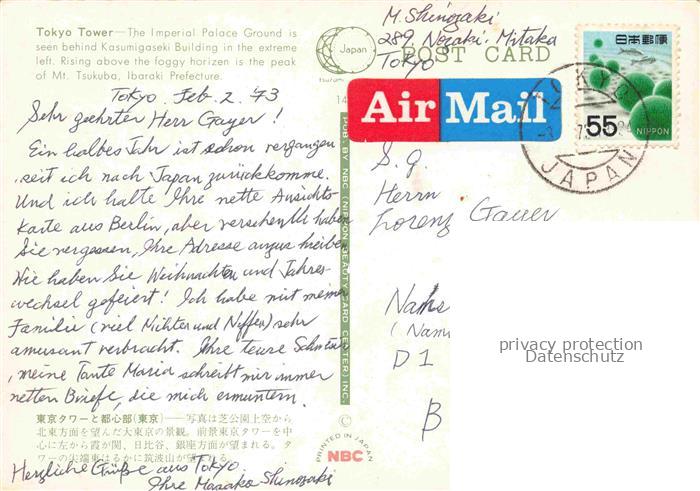 Tokyo Tower—The Imperial Palace Ground is
seen behind Kasumigaseki Building in the extreme
left. Rising above the foggy horizon is the peak
of Mt. Tsukuba, Ibaraki Prefecture.
Japan
POST CARD
M. Shinozaki
289, Nozaki. Mitaka
Tokyo
日本郵便
55
NIPPON
TOKYO
JAPAN
Air Mail
Tokyo. Feb. 2. '73
Sehr geehrter Herr Gayer!
Ein halbes Jahr ist schon vergangen
, seit ich nach Japan zurückkomme.
Und ich halte Ihre nette Ansichts-
Karte aus Berlin, aber haben
Sie vergessen, Ihre Adresse
Wie haben Sie Weihnachten und Jahres-
wechsel gefeiert! Ich habe mit meiner
Familie (viel und Neffen) sehr
amusant verbracht. Ihre teure
, meine Tante Maria schreibt mir immer
netten Briefe, die mich ermuntern.
東京タワーと都心部(東京)——写真は芝公園上空から
北東方面を望んだ大東京の景観。前景東京タワーを中
心に左から霞が関、日比谷、銀座方面が望まれる。タ
ワーの尖端東はるかに筑波山が望まれる。
Herzliche Grüße aus Tokyo
Ihre Masako Shinozaki
PUB. BY NBC (NIPPON BEAUTY CARD CENTER) INC.
©
PRINTED IN JAPAN
NBC
S. g
Herrn
Lorenz Gauer
D 1
B
privacy protection
Datenschutz